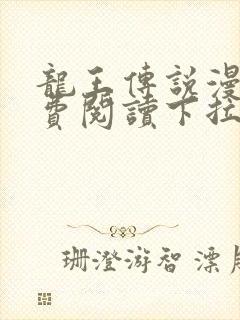 龍王傳說漫
費閱讀下拉
珊澄游智 漂